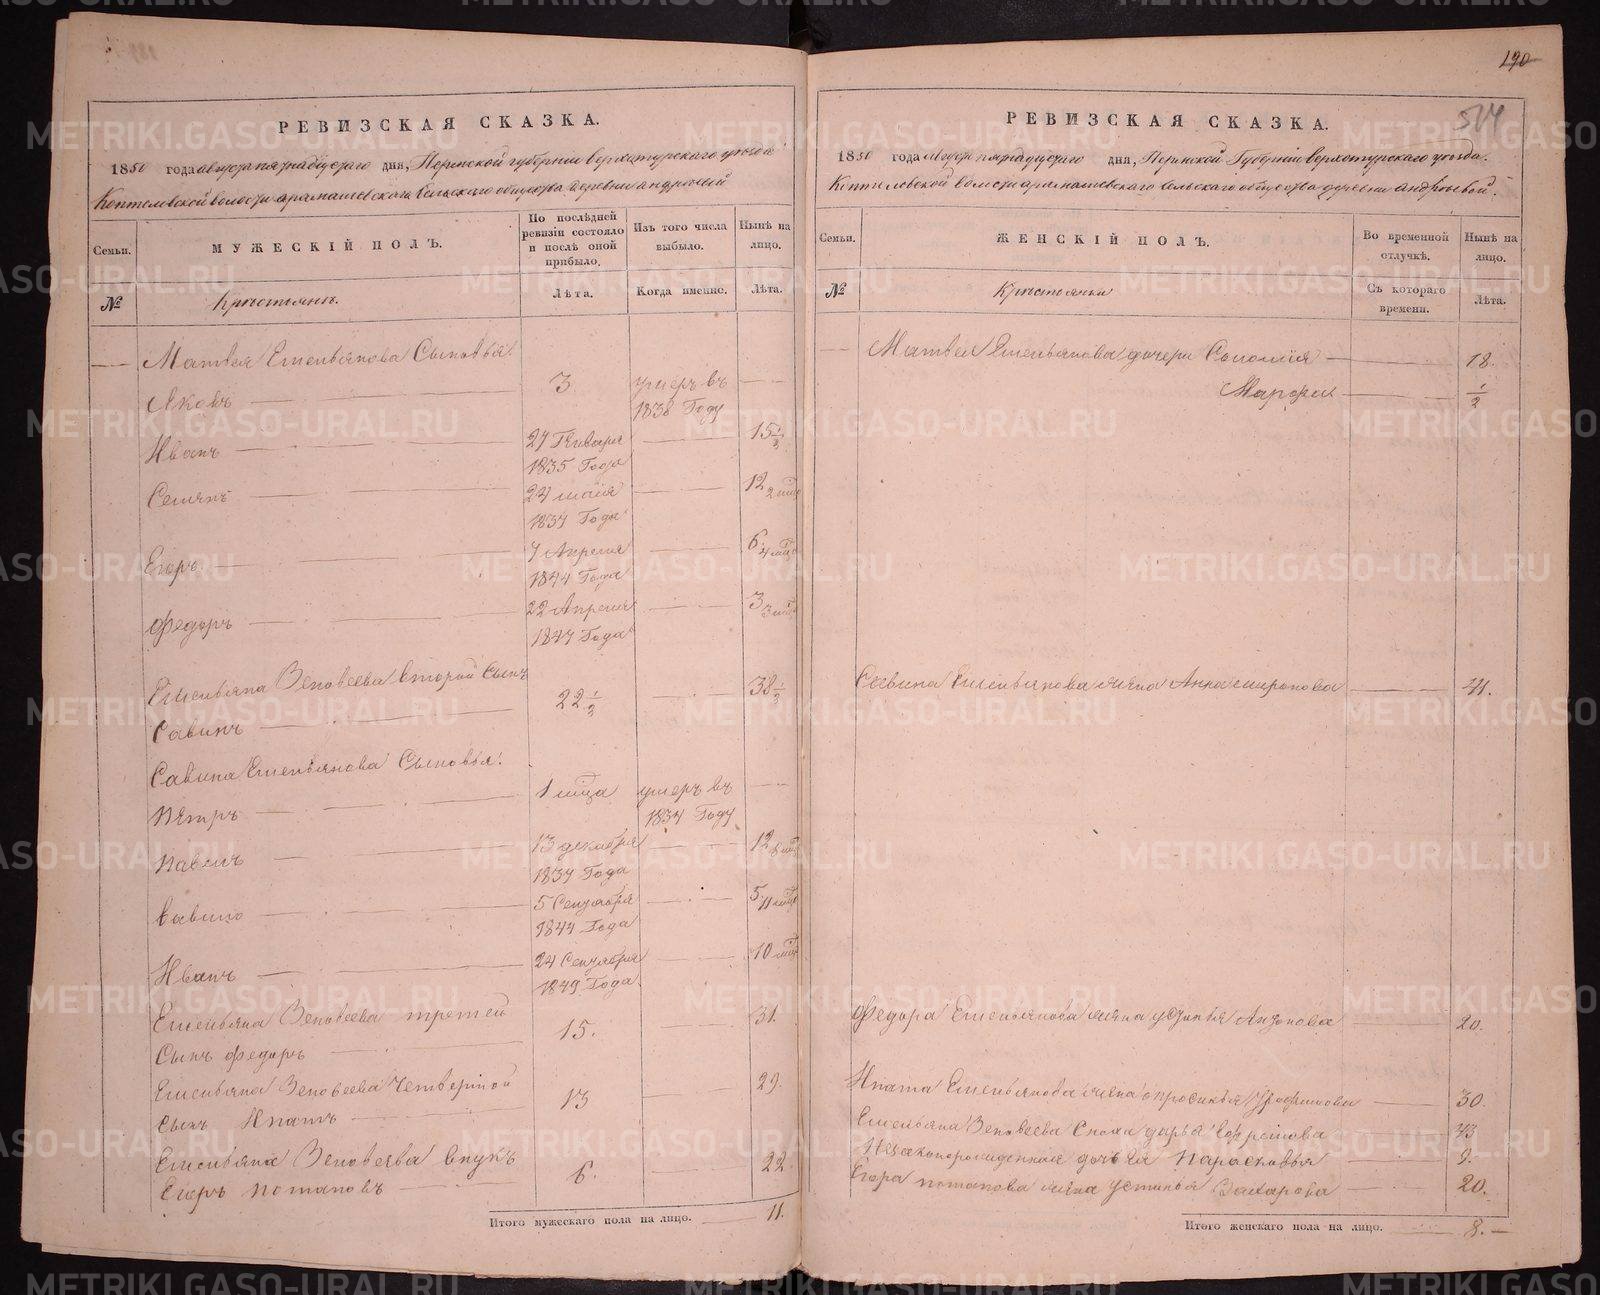 190
514
РЕВИЗСКАЯ СКАЗКА.
1850 года августа пятнадцатаго дня, Пермской губернии верхотурскаго уезда
Коптеловской волости арамашевскаго Сельскаго общества деревни андроновой
Семьи.
МУЖЕСКІЙ ПОЛЪ.
По послѣдней ревизіи состояло и послѣ оной прибыло.
Изъ того числа выбыло.
Нынѣ на лицо.
№
Крестьянъ.
Лѣта.
Когда именно.
Лѣта.
Матвея Емельянова Сыновья.
Яковъ 3 умеръ въ 1838 Году
Иванъ 27 Генваря 1835 Года 15 1/2
Семенъ 24 маія 1837 Года 12
Егоръ 7 Апреля 1844 Года 6
Федоръ 22 Апреля 1847 Года 3
Емельяна Зеновеева второй Сынъ
Савинъ 22 1/2 38 1/2
Савина Емельянова Сыновья.
Петръ 1 мца умеръ въ 1834 Году
Павелъ 13 декабря 1837 Года 12
Савино 5 Сентября 1844 Года 5
Иванъ 24 Сентября 1849 Года 10
Емельяна Зеновеева третей
Сынъ Федоръ 15. 31.
Емельяна Зеновеева четвертой
Сынъ Ипатъ 13 29.
Емельяна Зеновеева внукъ
Егоръ Потаповъ 6. 22.
Итого мужескаго пола на лицо. 11.
РЕВИЗСКАЯ СКАЗКА.
1850 года Августа пятнадцатаго дня, Пермской Губернии верхотурскаго уезда.
Коптеловской волости арамашевскаго Сельскаго общества деревни андроновой.
Семьи.
ЖЕНСКІЙ ПОЛЪ.
Во временной отлучкѣ.
Нынѣ на лицо.
№
Крестьянки
Съ котораго времени.
Лѣта.
Матвея Емельянова дочери Соломия 18.
Марфа 1/2
Савина Емельянова жена Анна миронова 41.
Федора Емельянова жена устинья Антонова 20.
Ипата Емельянова жена опросинья 30.
Емельяна Зеновеева Сноха дарья 43
Незаконорожденная дочь ея Парасковья 9.
Егора потапова жена Устинья Захарова 20.
Итого женскаго пола на лицо. 8.
METRIKI.GASO-URAL.RU